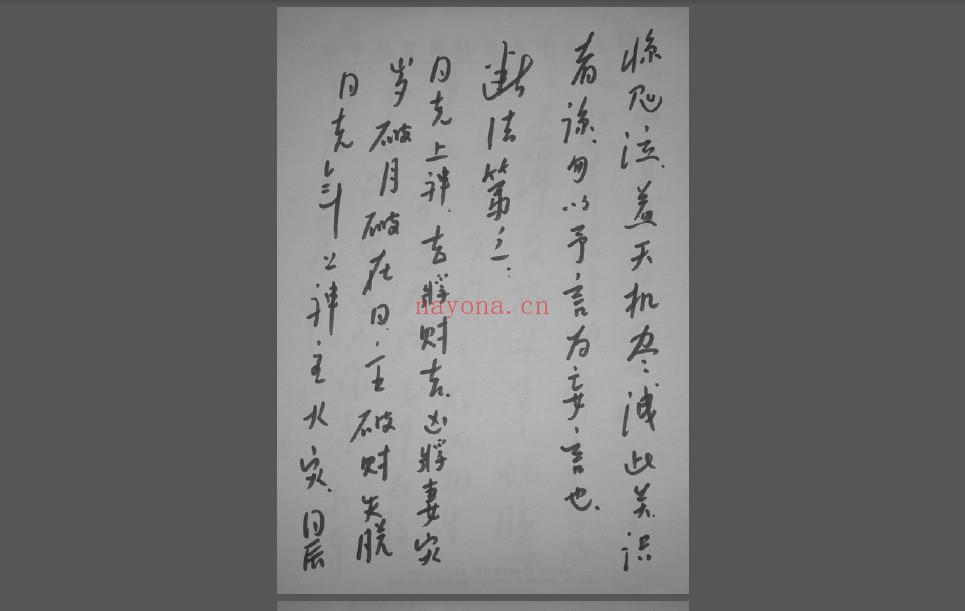 惊忍泣,盖天机尽泄此矣.识
者谅.毋以予言为妄言也.
断法第二:
日克上神.吉将财吉.凶将妻灾
岁破月破在日.主破财失脱
日克斗上神主火灾.日辰
nayona.cn